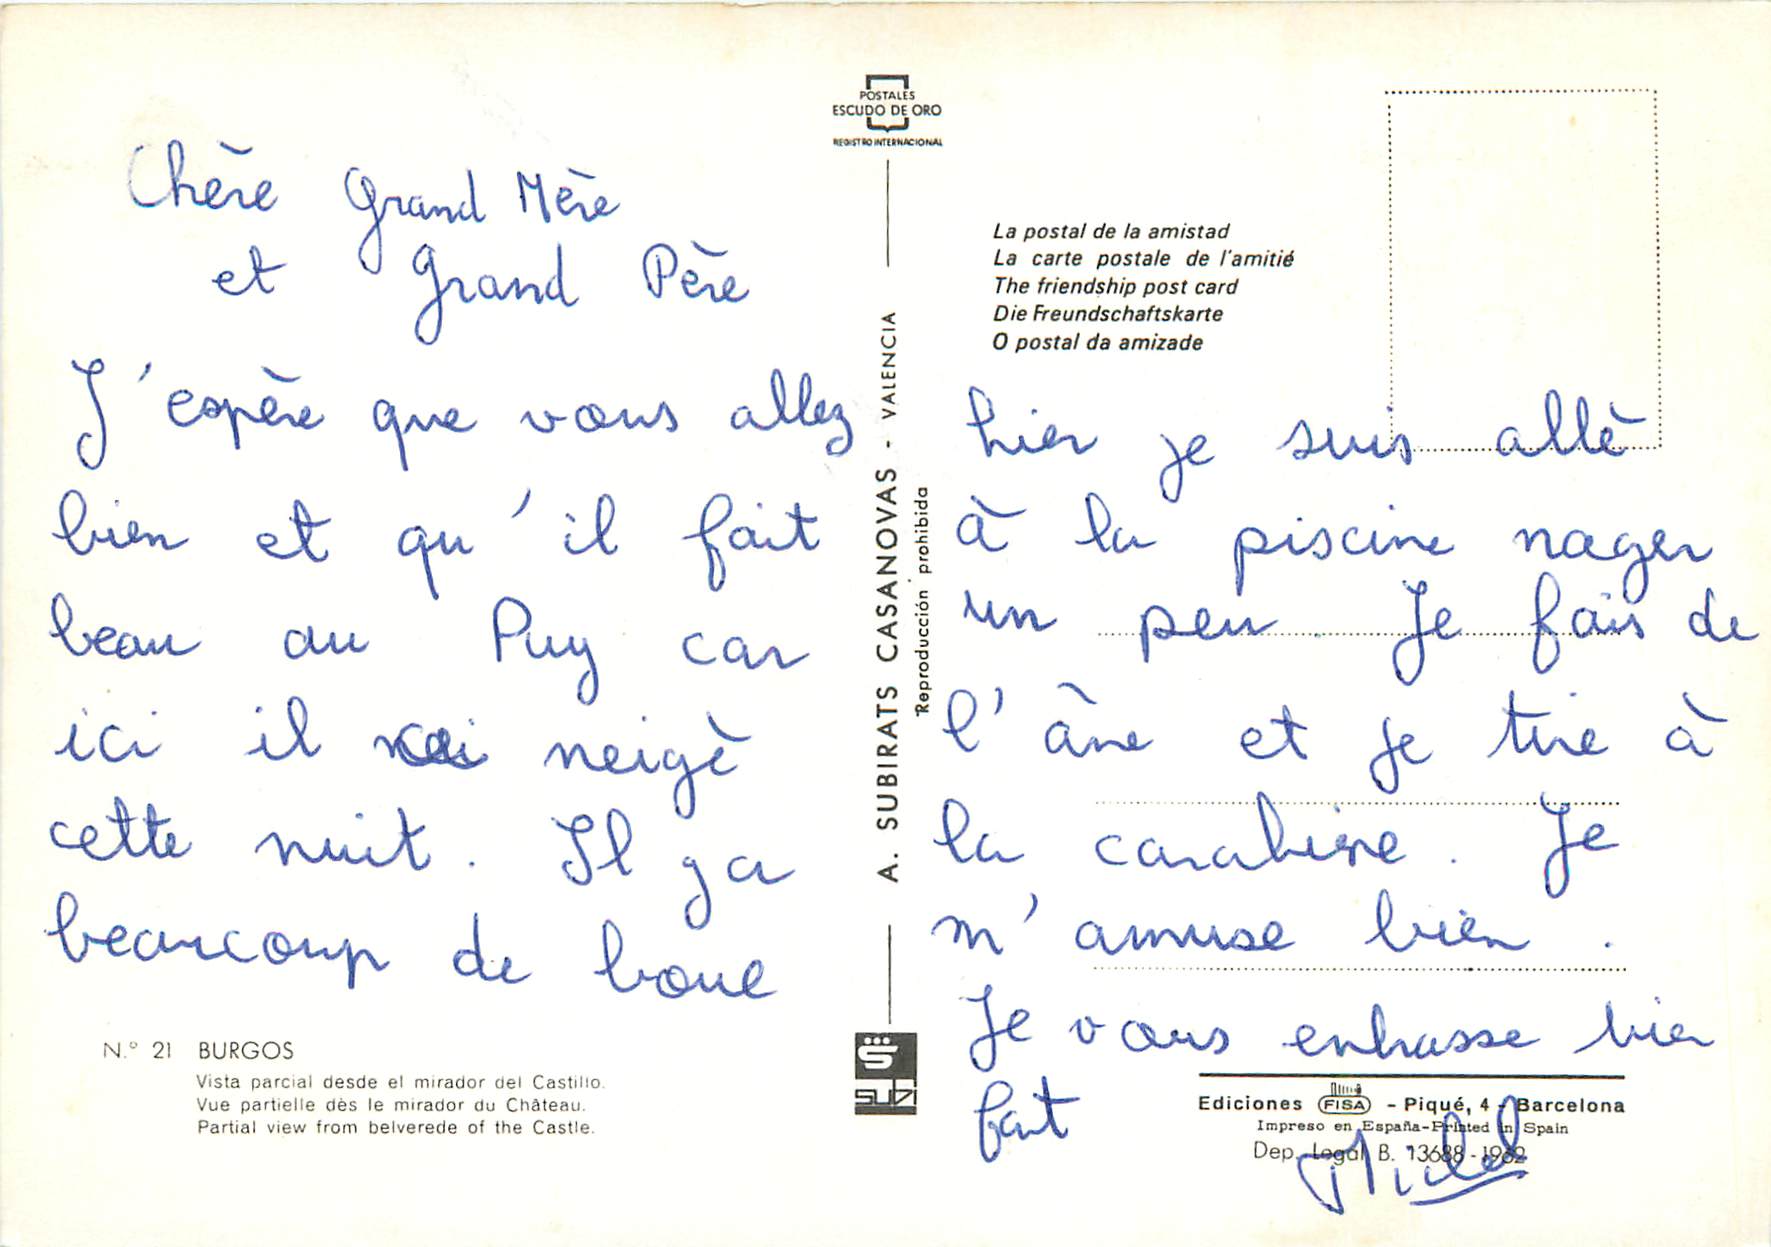 Chère Grand Mère
et Grand Père
J'espère que vous allez
bien et qu'il fait
beau au Puy car
ici il neigè
cette nuit. Il y a
beaucoup de boue
N.° 21 BURGOS
Vista parcial desde el mirador del Castillo.
Vue partielle dès le mirador du Château.
Partial view from belverede of the Castle.
POSTALES
ESCUDO DE ORO
REGISTRO INTERNACIONAL
A. SUBIRATS CASANOVAS - VALENCIA
Reproducción prohibida
SUBI
La postal de la amistad
La carte postale de l'amitié
The friendship post card
Die Freundschaftskarte
O postal da amizade
hier je suis allè
à la piscine nager
un peu. Je fais de
l'âne et je tire à
la carabine. Je
m'amuse bien.
Je vous enbrasse bien
fort
Ediciones FISA - Piqué, 4 - Barcelona
Impreso en España-Printed in Spain
Dep. Legal B. 13688-1962
Michel